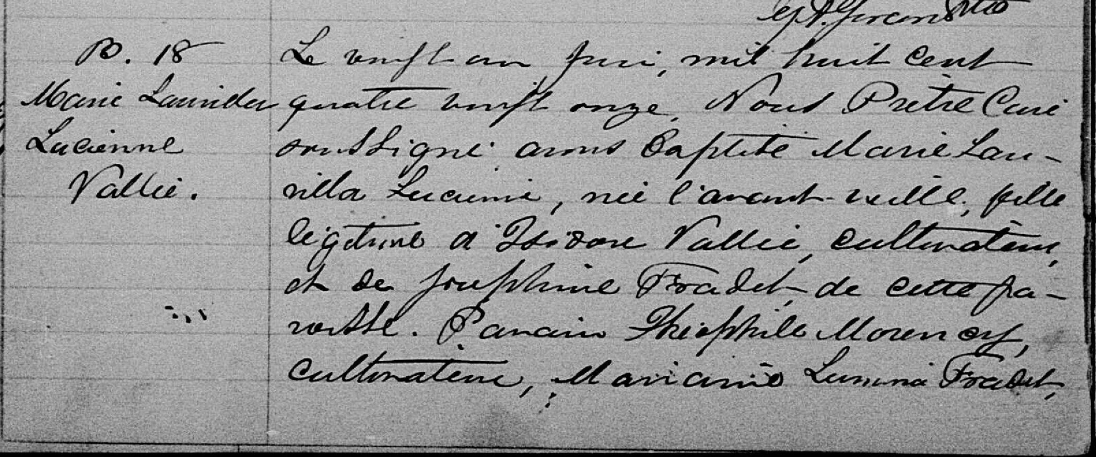 B. 18
Marie
Lucienne
Vallié.
Le vingt un juin, mil huit cent
quatre vingt onze, Nous Prêtre Curé
soussigné avons baptisé Marie Lau-
rilda Lucienne, née l'avant-veille, fille
légitime d'Isidore Vallié, cultivateur,
et de Joséphine Fradet, de cette pa-
roisse. Parrain Théophile Morency,
cultivateur, Marraine Lumina Fradet,